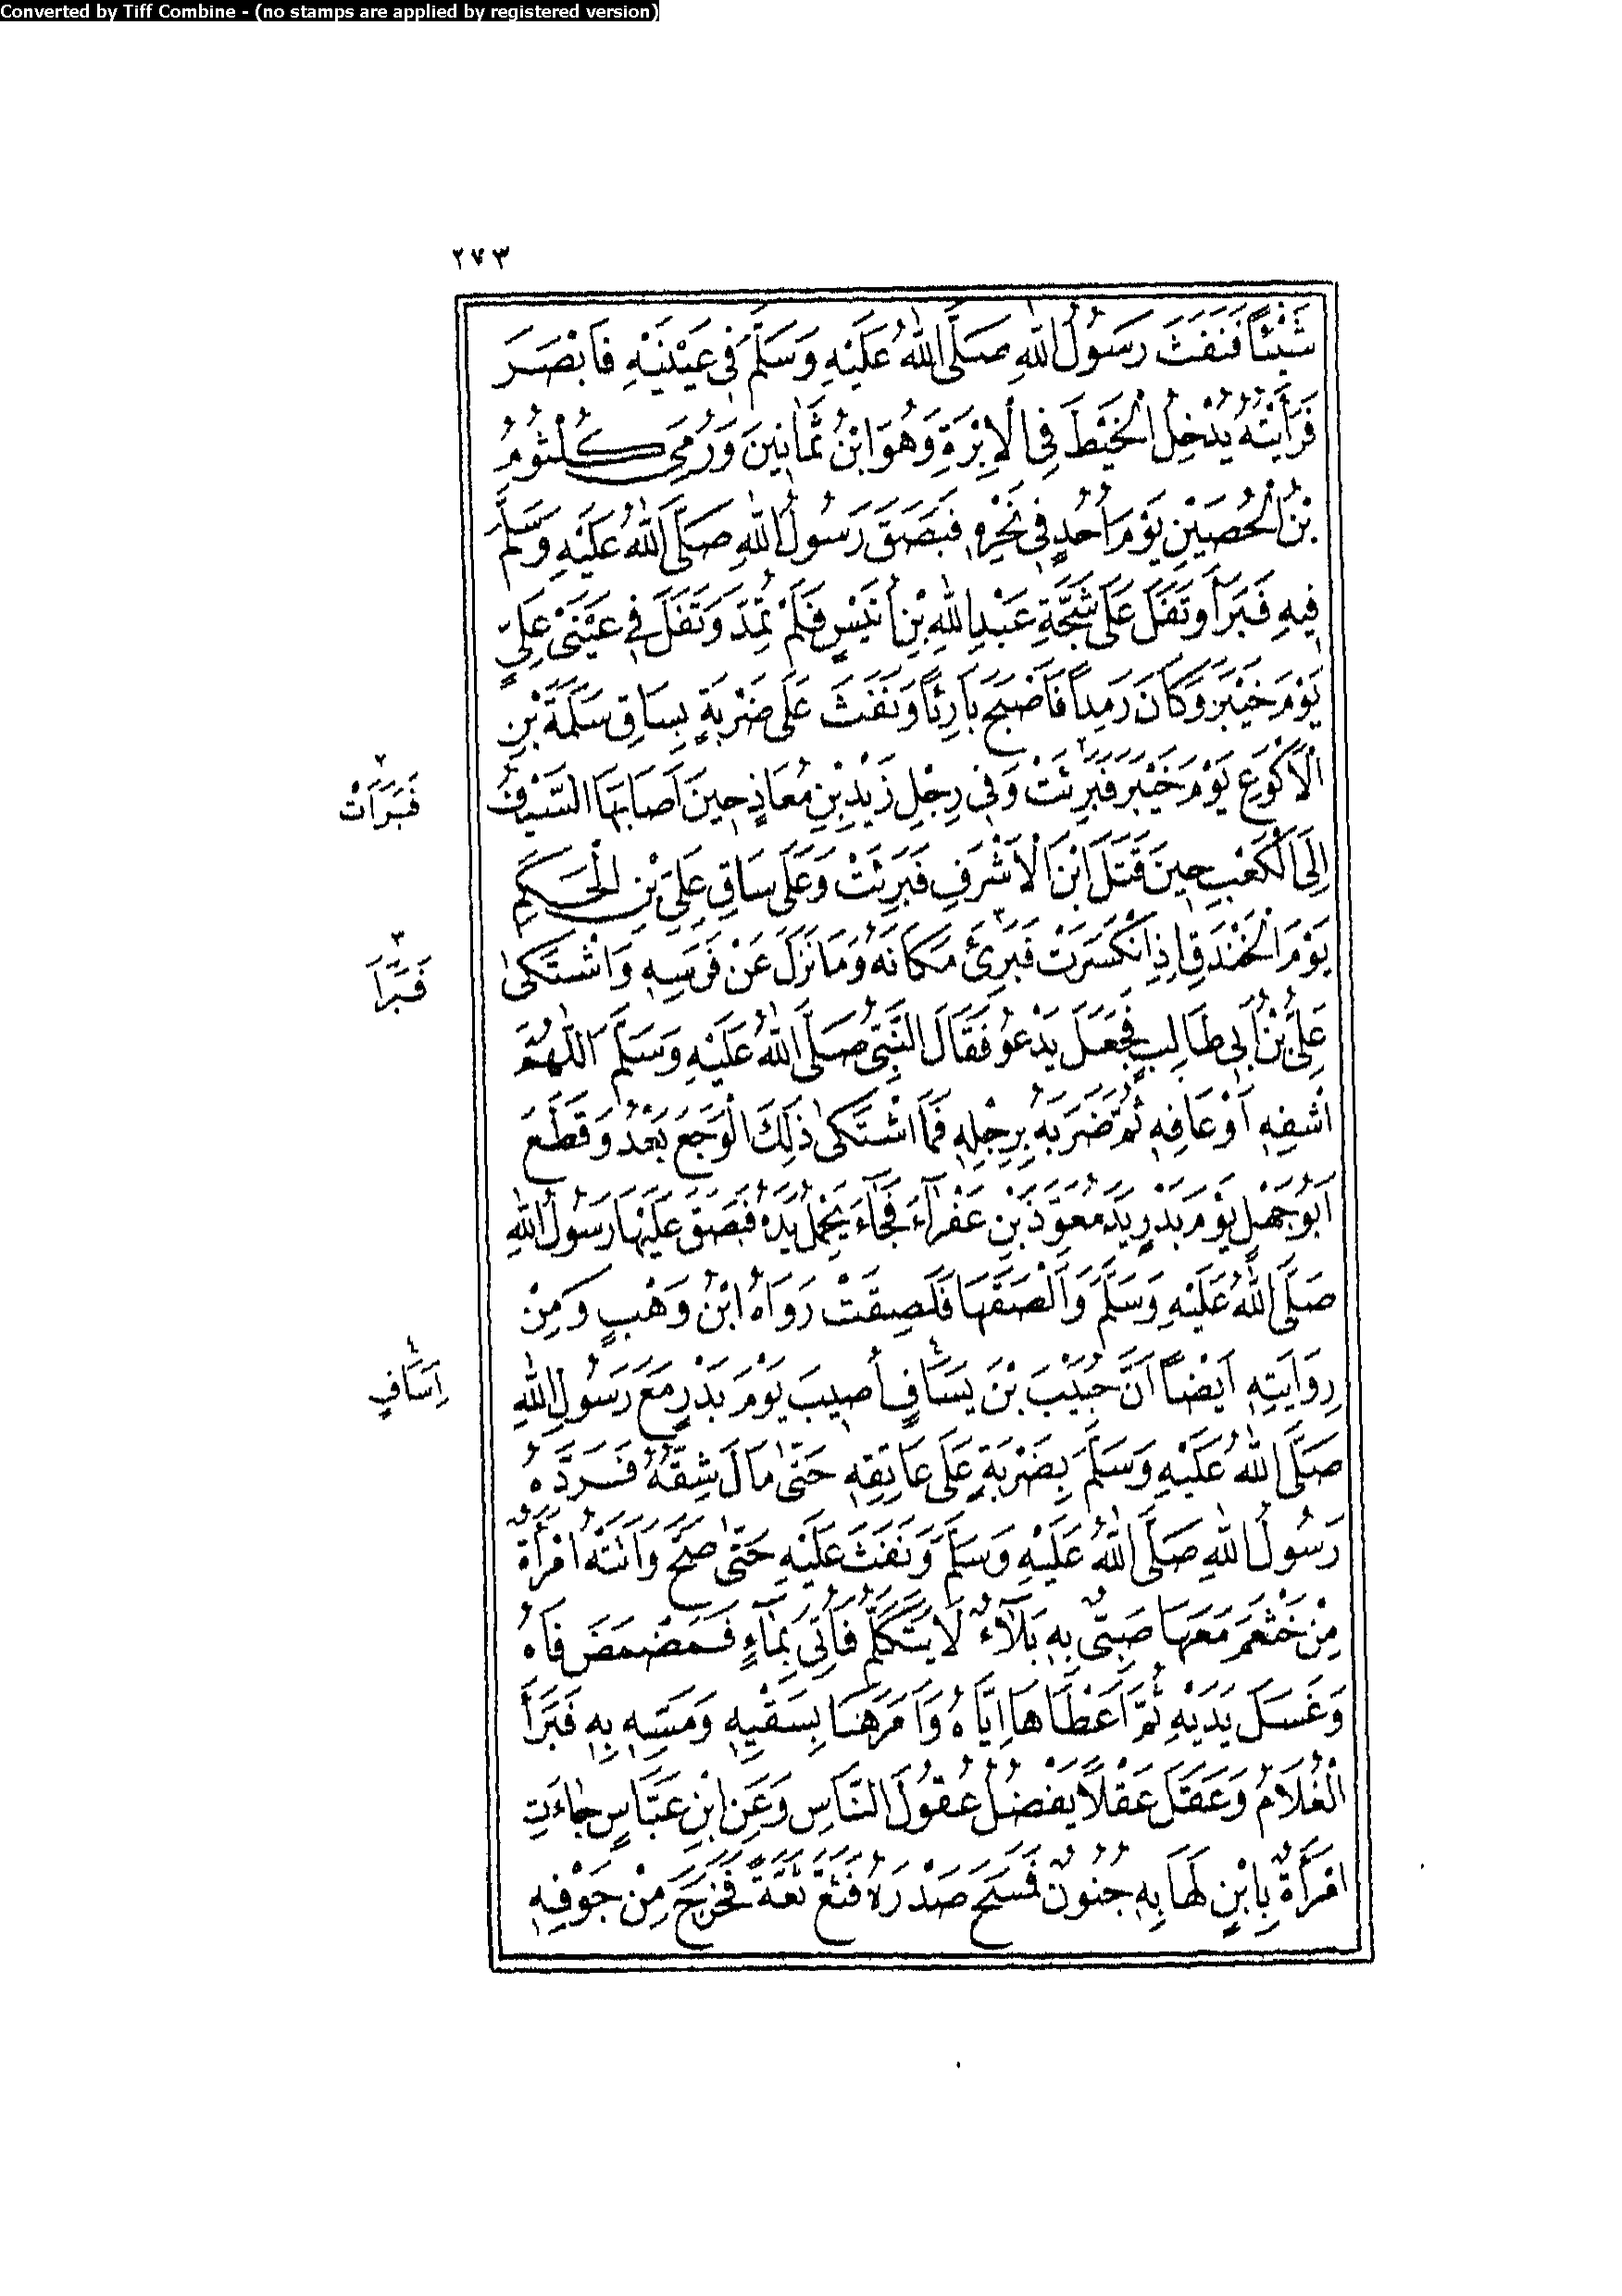 Converted by Tiff Combine - (no stamps are applied by registered version)
٢٧٣
شَيْئًا فَنَفَثَ رَسُولُ اللهِ صَلَّى اللهُ عَلَيْهِ وَسَلَّمَ فِى عَيْنَيْهِ فَاَبْصَرَ
فَرَأَيْتُهُ يُدْخِلُ الْخَيْطَ فِى الْاِبْرَةِ وَهُوَ ابْنُ ثَمَانِينَ وَرُمِىَ كُلْثُومُ
بْنُ الْحُصَيْنِ يَوْمَ اُحُدٍ فِى نَحْرِهِ فَبَصَقَ رَسُولُ اللهِ صَلَّى اللهُ عَلَيْهِ وَسَلَّمَ
فِيهِ فَبَرَأَ وَتَفَلَ عَلَى شَجَّةِ عَبْدِ اللهِ بْنِ اُنَيْسٍ فَلَمْ تُمِدَّ وَتَفَلَ فِى عَيْنَىْ عَلِيٍّ
يَوْمَ خَيْبَرَ وَكَانَ رَمِدًا فَاَصْبَحَ بَارِئًا وَنَفَثَ عَلَى ضَرْبَةٍ بِسَاقِ سَلَمَةَ بْنِ
الْاَكْوَعِ يَوْمَ خَيْبَرَ فَبَرِئَتْ ٢ وَفِى رِجْلِ زَيْدِ بْنِ مُعَاذٍ حِينَ اَصَابَهَا السَّيْفُ
٢ فَبَرَأَتْ
اِلَى الْكَعْبِ حِينَ قَتَلَ ابْنَ الْاَشْرَفِ فَبَرِئَتْ وَعَلَى سَاقِ عَلِىِّ بْنِ الْحَكَمِ
يَوْمَ الْخَنْدَقِ اِذِ انْكَسَرَتْ فَبَرِئَ ٣ مَكَانَهُ وَمَا نَزَلَ عَنْ فَرَسِهِ وَاشْتَكَىٰ
٣ فَبَرَأَ
عَلِىُّ بْنُ اَبِى طَالِبٍ فَجَعَلَ يَدْعُو فَقَالَ النَّبِىُّ صَلَّى اللهُ عَلَيْهِ وَسَلَّمَ اَللّٰهُمَّ
اشْفِهِ اَوْ عَافِهِ ثُمَّ ضَرَبَهُ بِرِجْلِهِ فَمَا اشْتَكَىٰ ذٰلِكَ الْوَجَعَ بَعْدُ وَقَطَعَ
اَبُو جَهْلٍ يَوْمَ بَدْرٍ يَدَ مُعَوِّذِ بْنِ عَفْرَآءَ فَجَآءَ يَحْمِلُ يَدَهُ فَبَصَقَ عَلَيْهَا رَسُولُ اللهِ
صَلَّى اللهُ عَلَيْهِ وَسَلَّمَ وَاَلْصَقَهَا فَلَصِقَتْ رَوَاهُ ابْنُ وَهْبٍ وَمِنْ
رِوَايَتِهِ اَيْضًا اَنَّ خُبَيْبَ بْنَ يَسَافٍ ٤ اُصِيبَ يَوْمَ بَدْرٍ مَعَ رَسُولِ اللهِ
٤ اِسَافٍ
صَلَّى اللهُ عَلَيْهِ وَسَلَّمَ بِضَرْبَةٍ عَلَى عَاتِقِهِ حَتَّىٰ مَالَ شِقُّهُ فَرَدَّهُ
رَسُولُ اللهِ صَلَّى اللهُ عَلَيْهِ وَسَلَّمَ وَنَفَثَ عَلَيْهِ حَتَّىٰ صَحَّ وَاَتَتْهُ امْرَأَةٌ
مِنْ خَثْعَمَ مَعَهَا صَبِىٌّ بِهِ بَلَآءٌ لَا يَتَكَلَّمُ فَاُتِىَ بِمَآءٍ فَمَضْمَضَ فَاهُ
وَغَسَلَ يَدَيْهِ ثُمَّ اَعْطَاهَا اِيَّاهُ وَاَمَرَهَا بِسَقْيِهِ وَمَسِّهِ بِهِ فَبَرَأَ
الْغُلَامُ وَعَقَلَ عَقْلًا يَفْضُلُ عُقُولَ النَّاسِ وَعَنِ ابْنِ عَبَّاسٍ جَاءَتِ
امْرَأَةٌ بِابْنٍ لَهَا بِهِ جُنُونٌ فَمَسَحَ صَدْرَهُ فَثَعَّ ثَعَّةً فَخَرَجَ مِنْ جَوْفِهِ